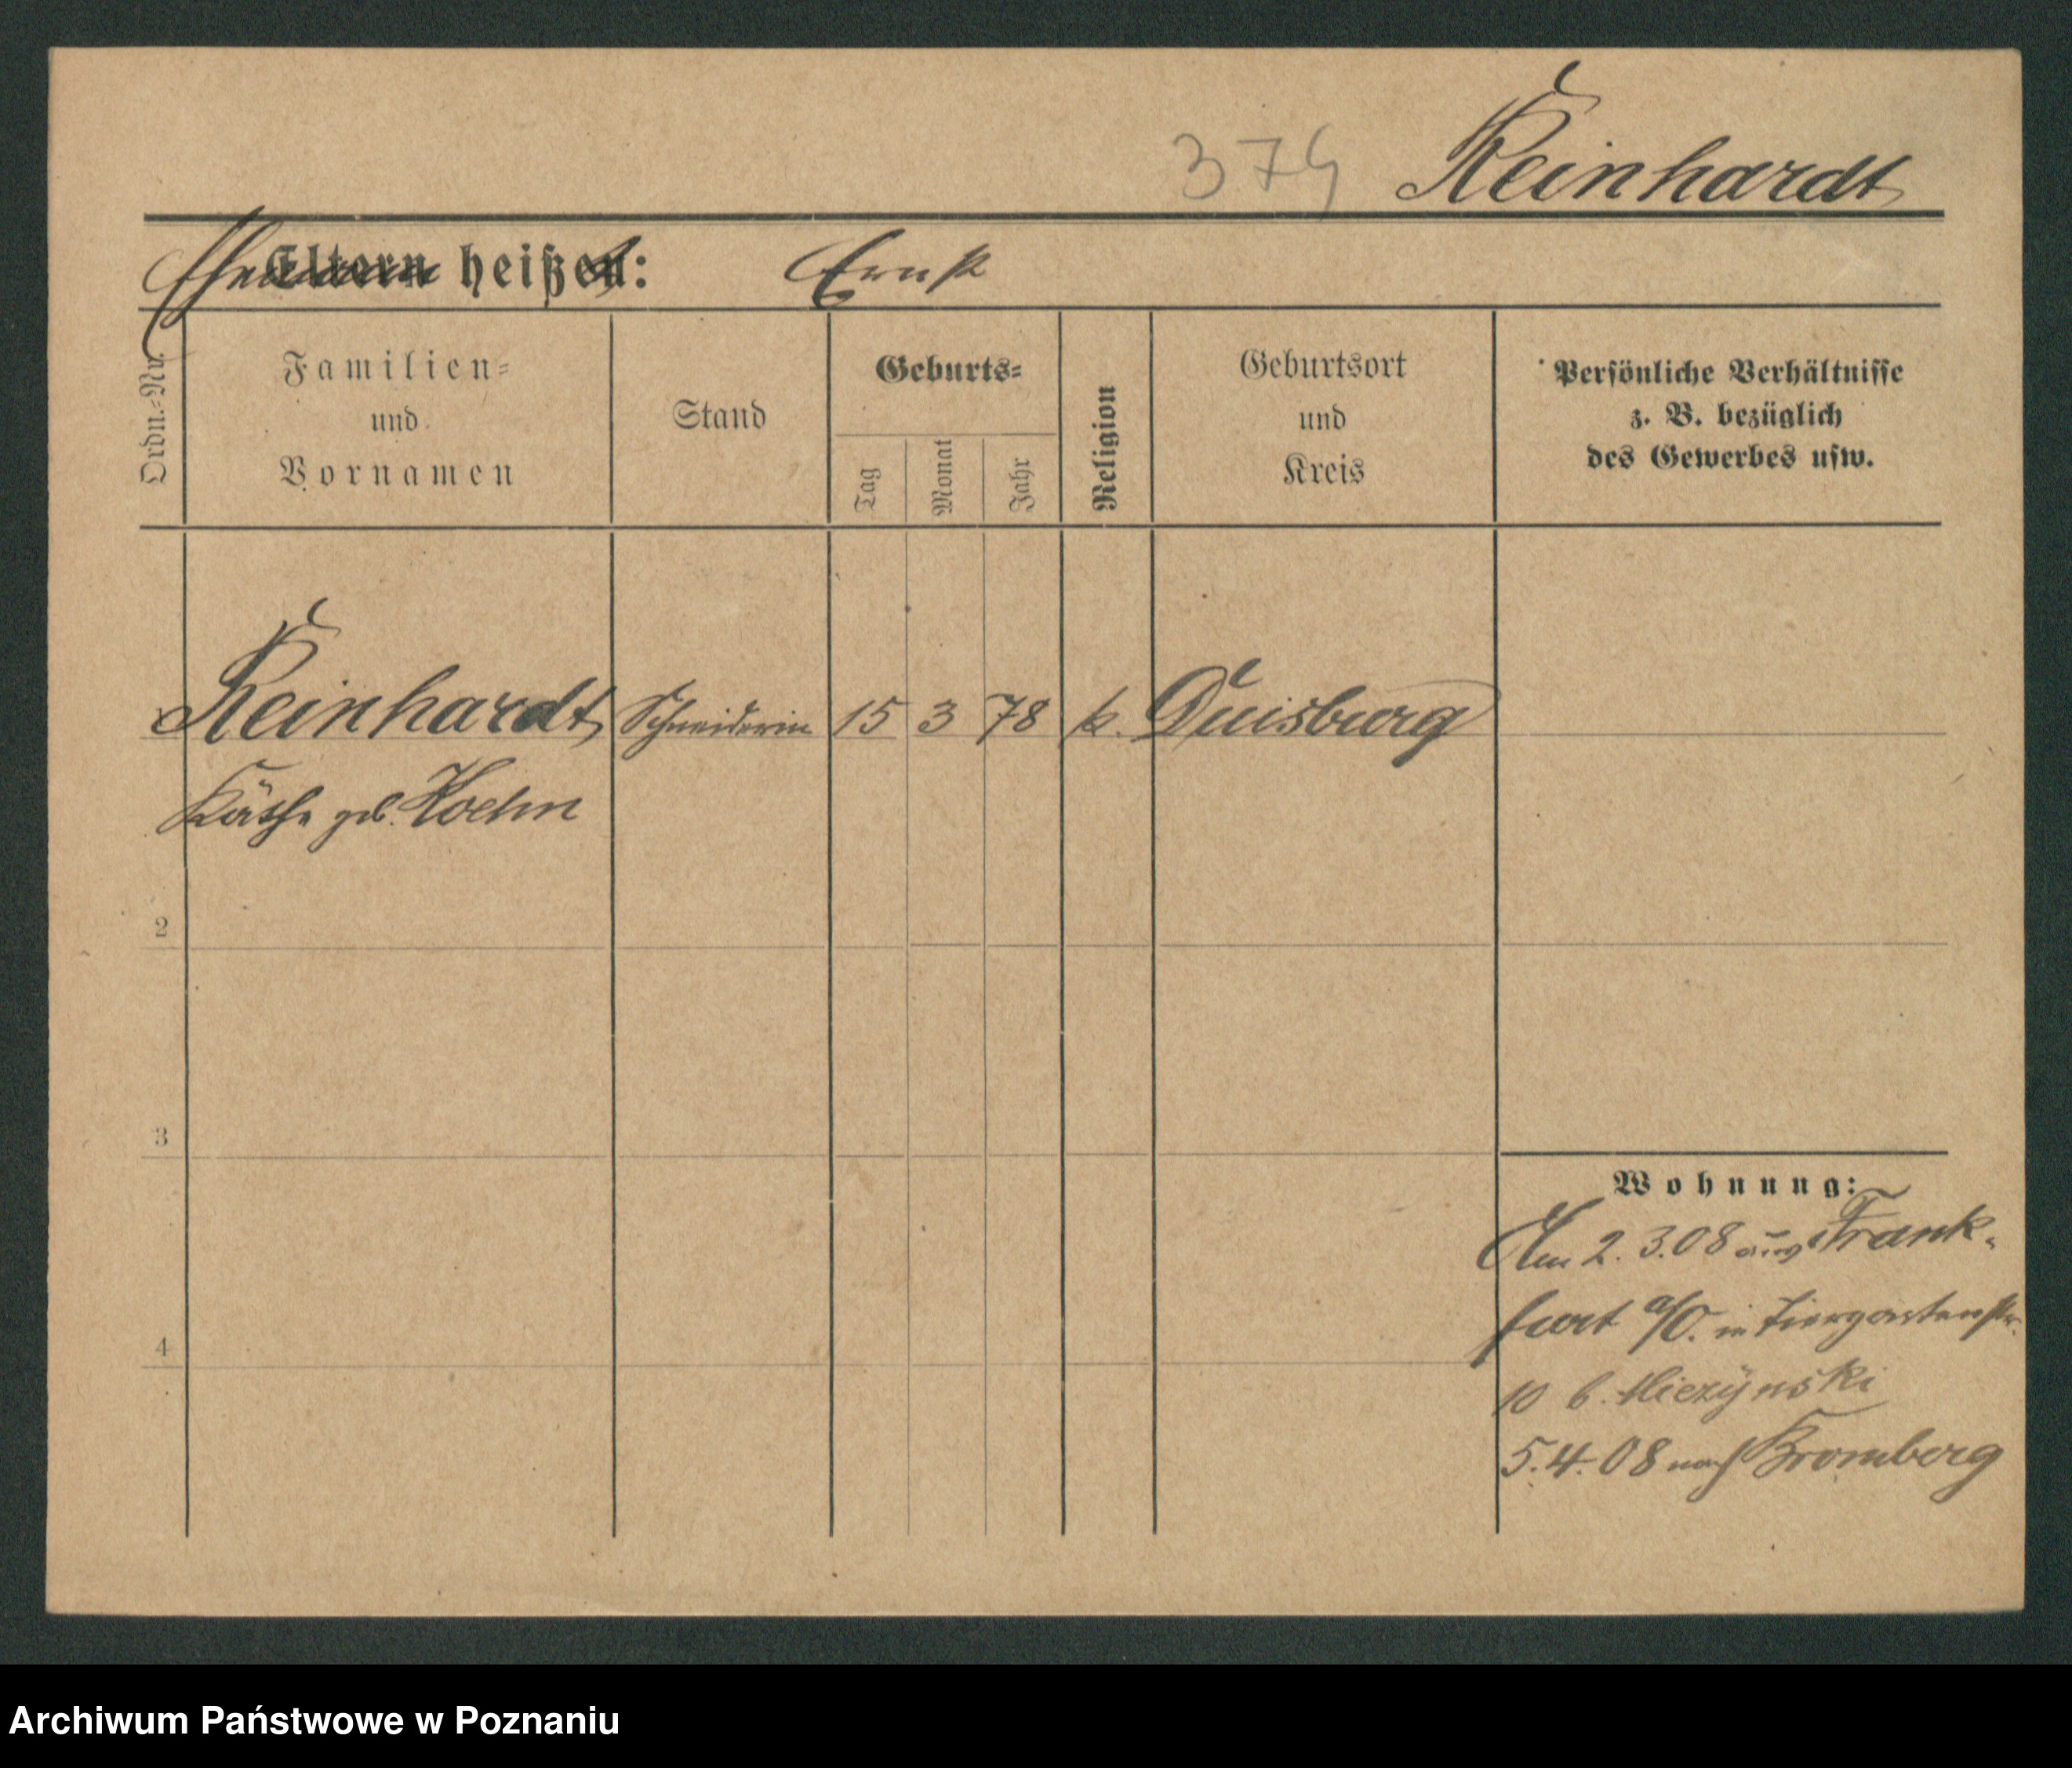 379 Reinhardt
Ehemann heißt: Ernst
Eltern heißen:
Ordn.-Nr.
Familien-
und
Vornamen
Stand
Geburts-
Tag
Monat
Jahr
Religion
Geburtsort
und
Kreis
Persönliche Verhältnisse
z. B. bezüglich
des Gewerbes usw.
Reinhardt Schneiderin 15 3 78 k. Duisburg
Käthe geb. Hoehn
2
3
4
Wohnung:
Am 2. 3.08 aus Frank-
furt a/O. in Tiergartenstr.
10 b.
5.4.08 nach Bromberg
Archiwum Państwowe w Poznaniu